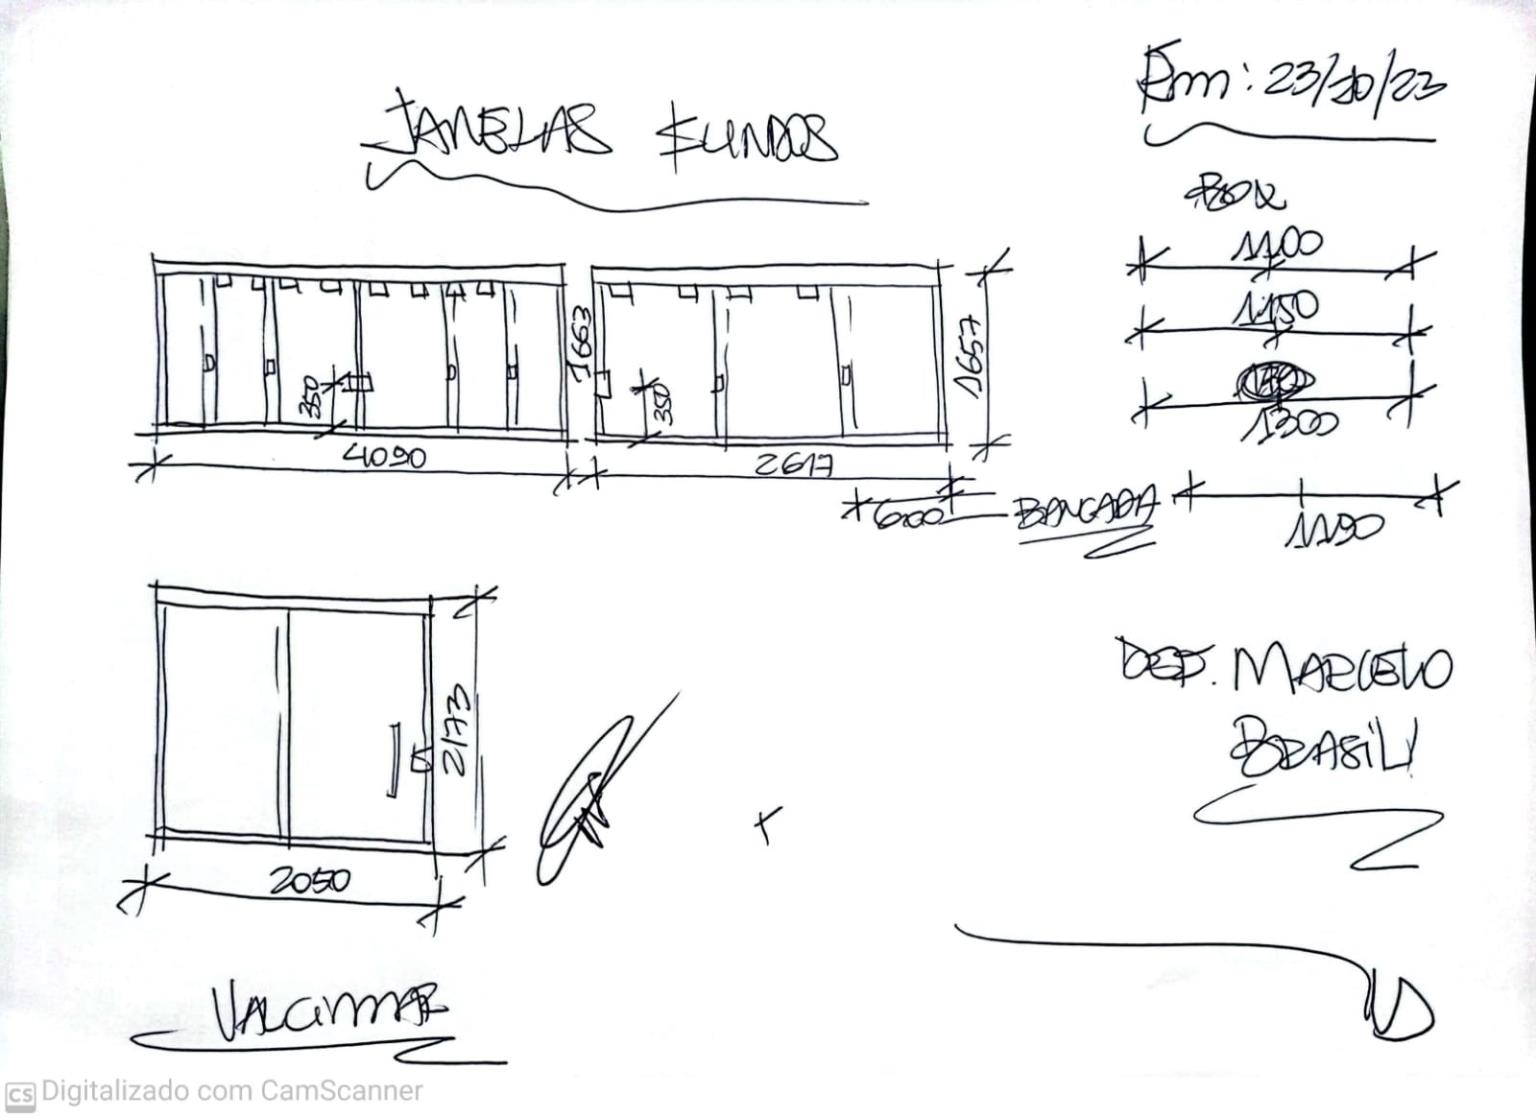 Em: 23/10/23
JANELAS FUNDOS
BOX
1100
1150
1300
1663
1657
350
350
4090
2617
600
BANCADA
1190
2173
2050
DEP. MARCELO
BRASIL
VALCIMAR
CS Digitalizado com CamScanner